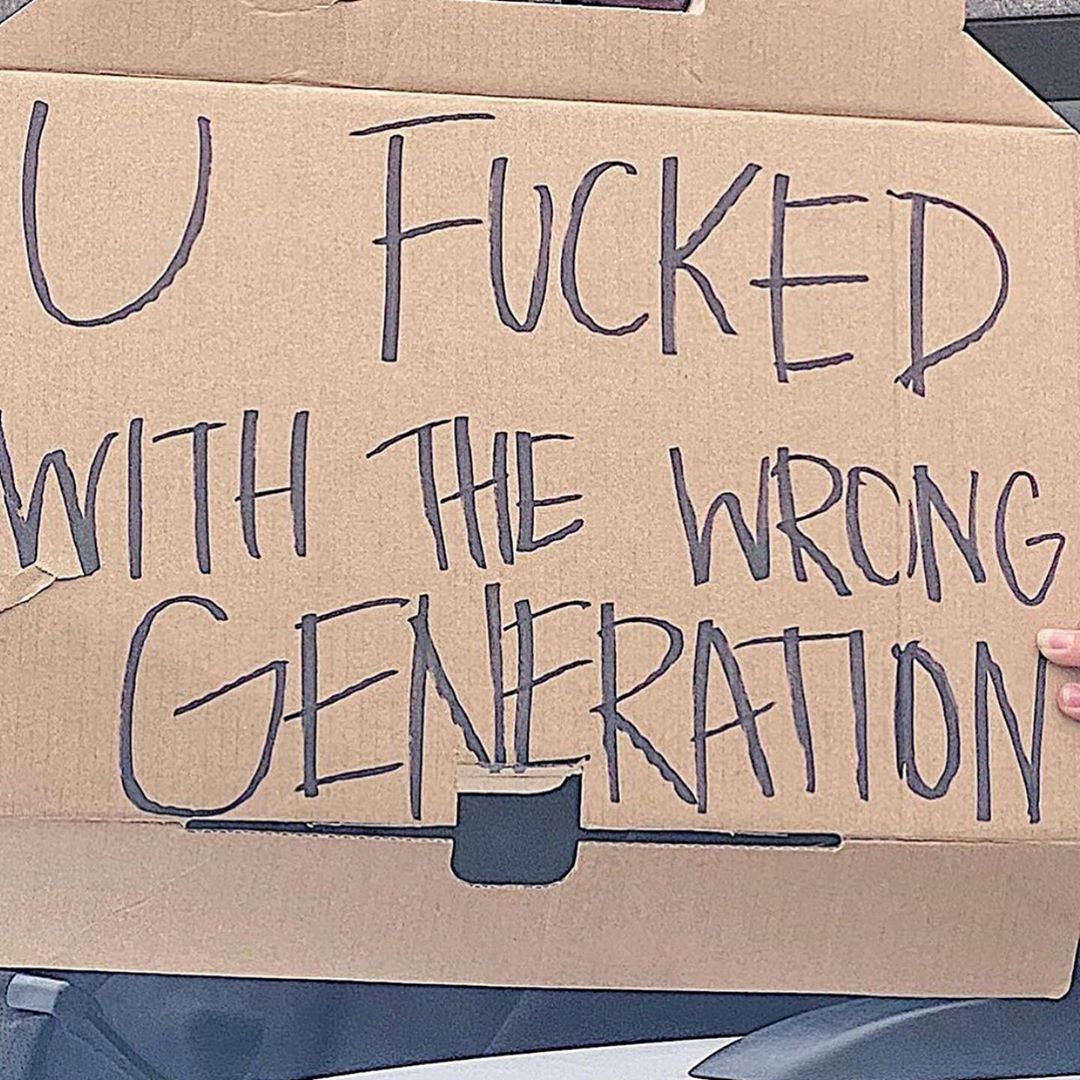 U FUCKED
WITH THE WRONG
GENERATION